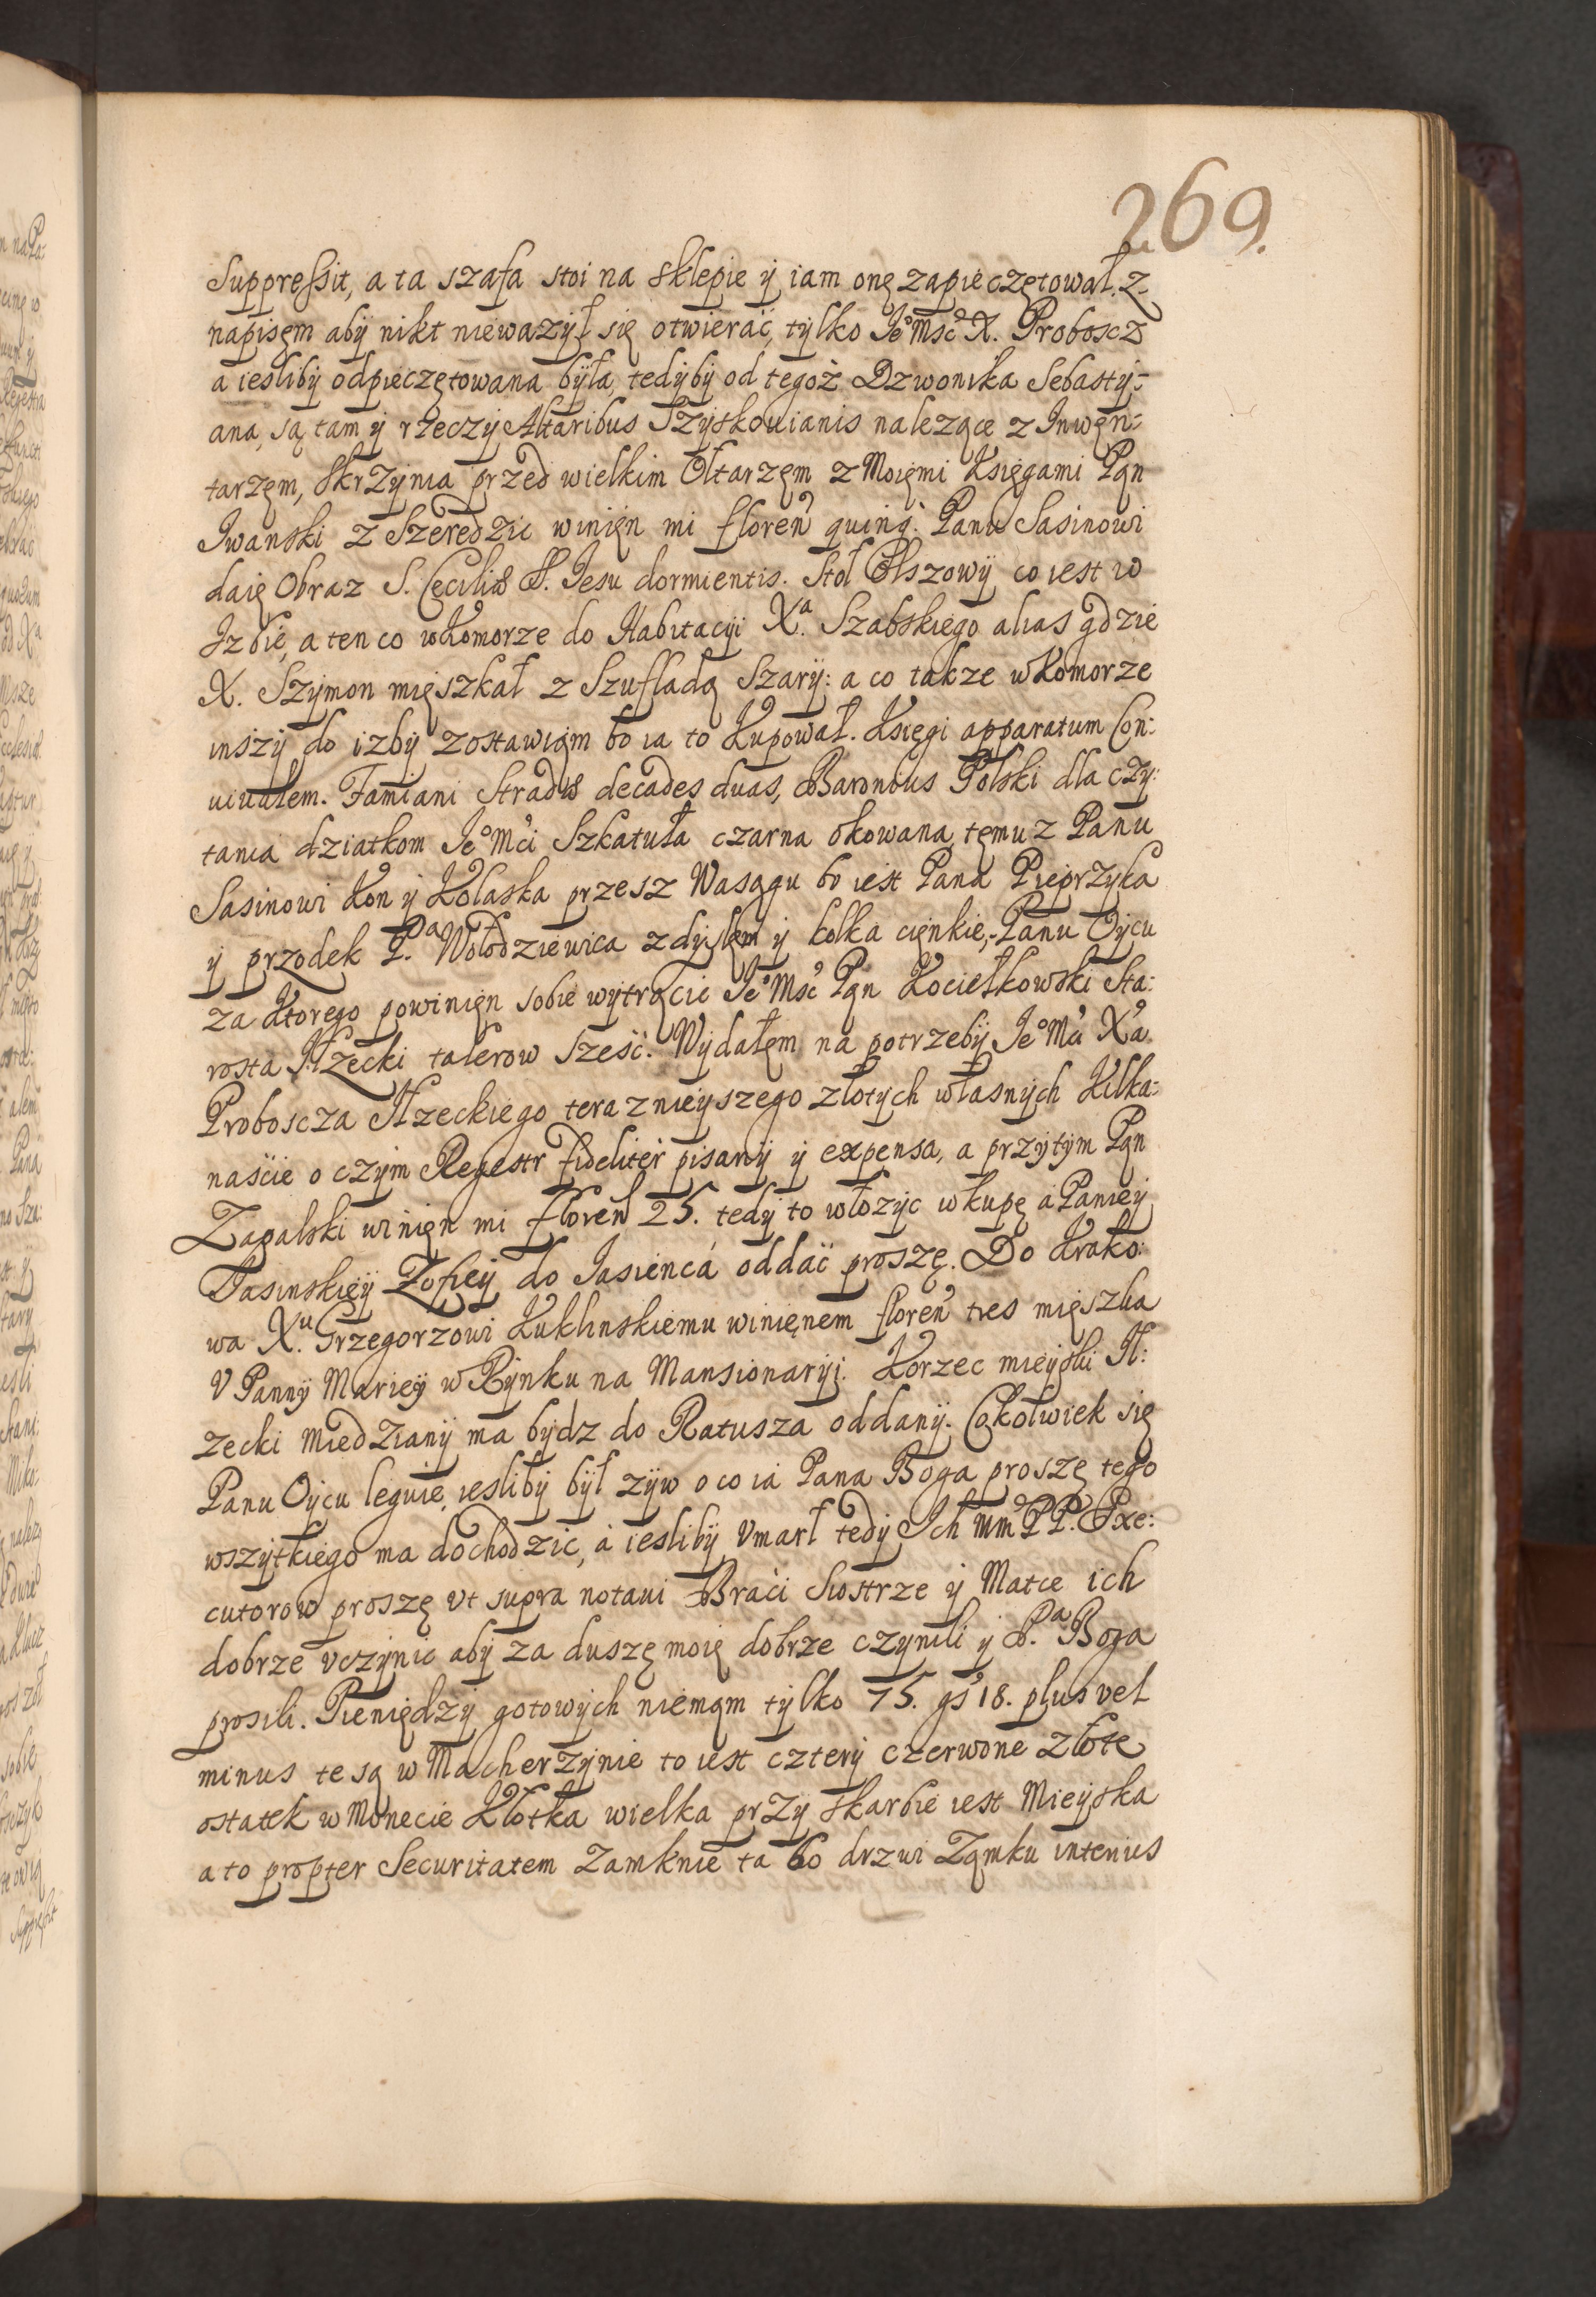 269.
Suppressit, a ta szafa stoi na sklepie ÿ iam onę zapieczętował. z
napisęm abÿ nikt nieważÿł się otwierać, tÿlko Je° Msć X. Proboscz
a iesliby odpieczętowana bÿła, tedÿbÿ od tegoż Dzwonika Sebastÿ:
ana, są tam ÿ rzeczÿ Altaribus Szyskouianis nalezące z Inwęn:
tarzęm, skrzÿnia przed wielkim Ołtarzęm z Moięmi Księgami Pąn
Iwanski z Szeredzic winięn mi floreń quinq. Panu Sasinowi
daię Obraz S. Cęciliæ S. Iesu dormientis. Stoł Olszowÿ co iest w
Izbie, a ten co w Komorze do Habitacÿi Xa. Szabskiego alias gdzie
X. Szÿmon mięszkał z Szufladą Szarÿ: a co takze w Komorze
inszÿ do izbÿ zostawiąm bo ia to Kupował. Księgi apparatum Con:
uiualem. Famiani Stradæ decades duas, Baronius Polski dla czÿ:
tania dziatkom Je° Mći Szkatuła czarna okowana, tęmuz Panu
Sasinowi Kon ÿ Kolaska przesz Wasągu bo iest Pana Pieprzyka
ÿ przodek Pa. Wołodziewica z dÿslęm ÿ kolka cięnkie, Panu Oÿcu
za Ktorego powinięn sobie wÿtrącic Je° Msć Pąn Kociełkowski Sta:
rosta Iłzecki talerow sześć. Wÿdałęm na potrzebÿ Je° Mći Xa
Proboscza Iłzeckiego teraznieÿszego złotÿch własnÿch Kilka:
naście o czÿm Regestr fideliter pisanÿ ÿ expensa, a przÿtÿm Pąn
Zagalski winięn mi floreń 25. tedÿ to włozÿc w kupę a Panieÿ
Jasinskieÿ Zofieÿ do Iasienca oddać proszę. Do Krako:
wa Xu. Grzegorzowi Kuklinskiemu winięnem floreń tres mięszka
V Pannÿ Marieÿ w Rÿnku na Mansionarÿi. Korzec mieÿski Ił:
zecki miedzianÿ ma bÿdz do Ratusza oddanÿ. Cokolwiek się
Panu Oÿcu leguie, ieslibÿ bÿł zÿw o co ia Pana Boga proszę tego
wszÿtkiego ma dochodzic, a ieslibÿ Vmarł tedÿ Ich Mm PP. Exe:
cutorow proszę vt supra notaui Braci Siostrze ÿ Matce ich
dobrze vczÿnic abÿ za duszę moię dobrze czÿnili ÿ Pa. Boga
prosili. Pieniędzÿ gotowÿch niemąm tÿlko 75. gs 18. plus vel
minus te są w Macherzÿnie to iest czterÿ czerwone złote
ostatek w Monecie Kłotka wielka przÿ skarbie iest Mieÿska
a to propter Securitatem Zamknie ta bo drzwi Ząmku interius